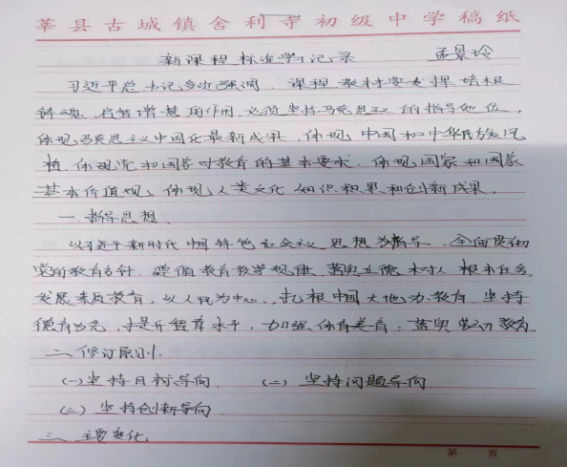 莘县古城镇舍利寺初级中学稿纸
新课程标准学习记录 孟景玲
习近平总书记多次强调,课程教材要发挥培根
铸魂、启智增慧的作用,必须坚持马克思主义的指导地位,
体现马克思主义中国化最新成果,体现中国和中华民族风
格,体现党和国家对教育的基本要求,体现国家和国家
基本价值观,体现人类文化知识积累和创新成果。
一、指导思想
以习近平新时代中国特色社会主义思想为指导,全面贯彻
党的教育方针,遵循教育教学规律,落实立德树人根本任务,
发展素质教育,以人民为中心,扎根中国大地办教育,坚持
德育为先,提升智育水平,加强体育美育,落实劳动教育
二、修订原则
(一)坚持目标导向 (二)坚持问题导向
(三)坚持创新导向
三、主要变化
第 页